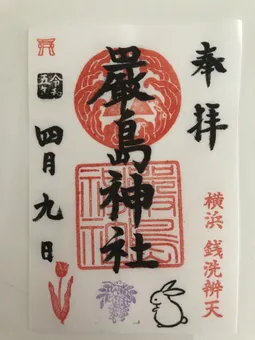 奉拝
横浜 銭洗辨天
厳島神社
令和
五年
四月九日